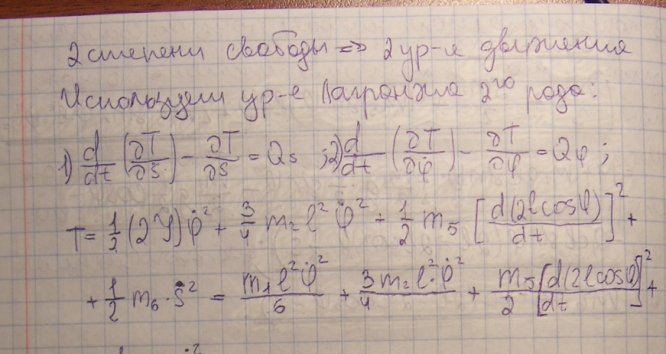 2 степени свободы => 2 ур-я движения
Используем ур-е Лагранжа 2го рода:
1) d/dt (∂T/∂S) - ∂T/∂S = Qs ; 2) d/dt (∂T/∂φ) - ∂T/∂φ = Qφ ;
T = 1/2 (2J) φ̇² + 3/4 m₂ l² φ̇² + 1/2 m₅ [d(2l cosφ)/dt]² +
+ 1/2 m₆ · Ṡ² = m₁ l² φ̇²/6 + 3 m₂ l² φ̇²/4 + m₅/2 [d(2l cosφ)/dt]² +